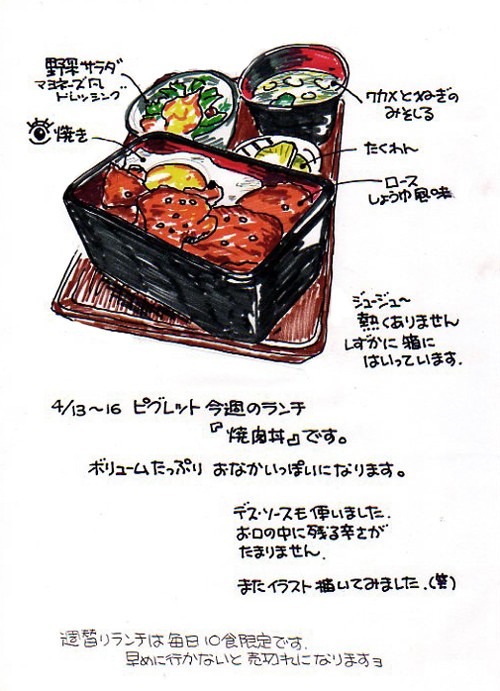 野菜サラダ
マヨネーズ風
ドレッシング
焼き
ワカメとねぎの
みそしる
たくわん
ロース
しょうゆ風味
ジュージュ〜
熱くありません
しずかに箱に
はいっています.
4/13〜16 ピグレット 今週のランチ
『焼肉丼』です。
ボリュームたっぷり おなかいっぱいになります。
デス・ソースも使いました.
お口の中に残る辛さが
たまりません.
またイラスト描いてみました.(笑)
週替りランチは毎日10食限定です.
早めに行かないと売切れになりますョ